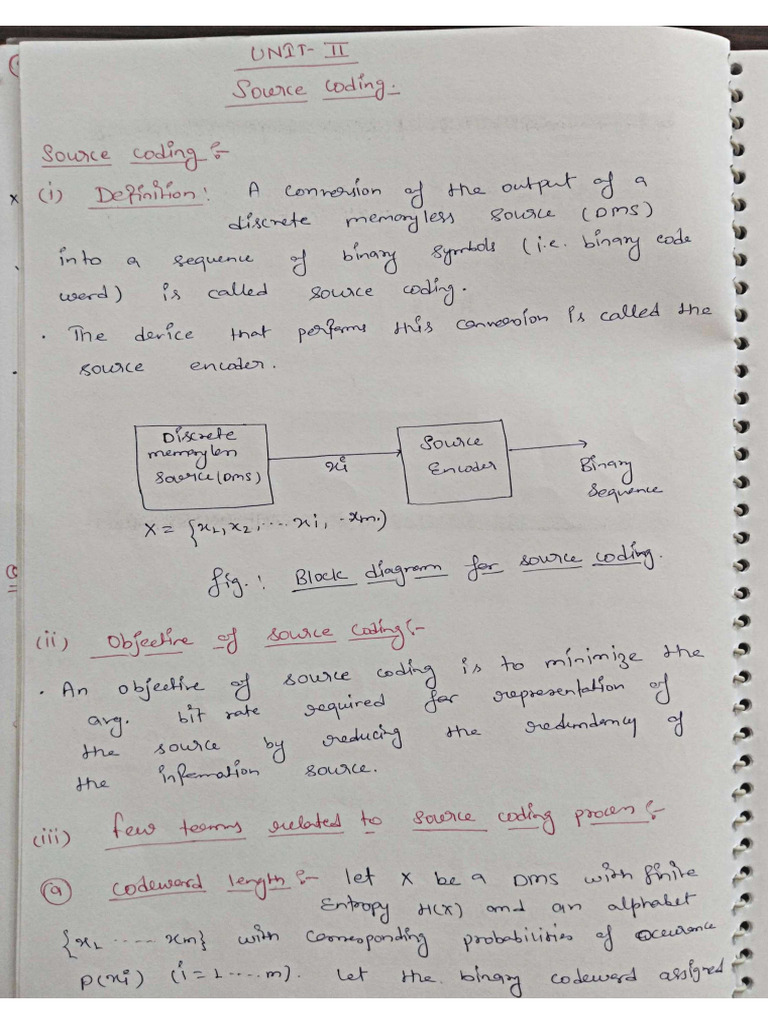 UNIT-II
Source Coding.
Source coding :-
(i) Definition: A conversion of the output of a
discrete memoryless source (DMS)
into a sequence of binary symbols (i.e. binary code
word) is called source coding.
• The device that performs this conversion is called the
source encoder.
Discrete
memoryless
Source (DMS)
xi
Source
Encoder
Binary
Sequence
X = {x1, x2, ... xi, .. xm.}
fig. : Block diagram for source coding.
(ii) Objective of source coding :-
• An objective of source coding is to minimize the
avg. bit rate required for representation of
the source by reducing the redundancy of
the information source.
(iii) few terms related to source coding process :-
(a) codeword length :- let X be a DMS with finite
Entropy H(X) and an alphabet
{x1 ..... xm} with corresponding probabilities of occurence
P(xi) (i = 1 ..... m). Let the binary codeword assigned